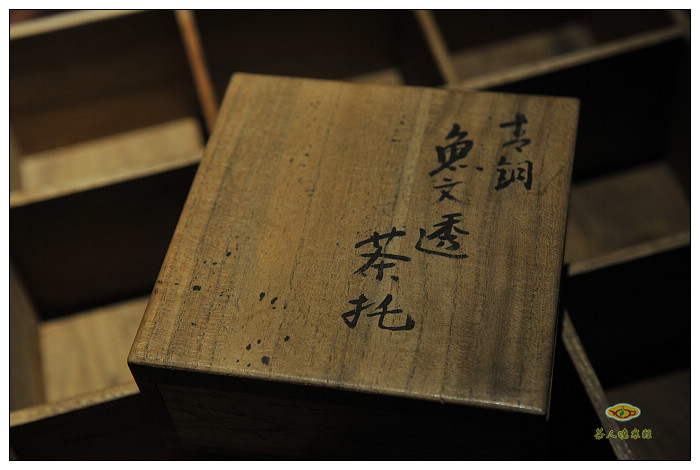 青銅
魚文透
茶托